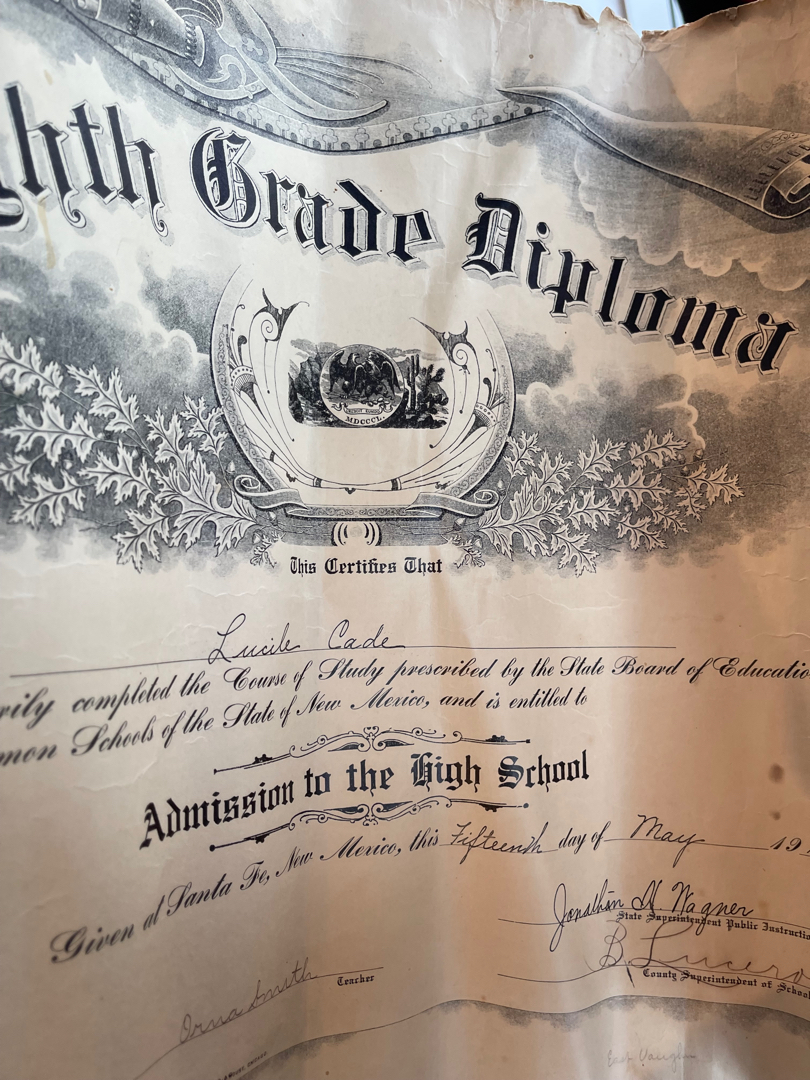 hth Grade Diploma
MDCCCL
This Certifies That
Lucile Cade
rily completed the Course of Study prescribed by the State Board of Educatio
mon Schools of the State of New Mexico, and is entitled to
Admission to the High School
Given at Santa Fe, New Mexico, this Fifteenth day of May 19
Jonathan H. Wagner
State Superintendent Public Instructio
B. Lucero
County Superintendent of School
Orna Smith
Teacher
East Vaughn